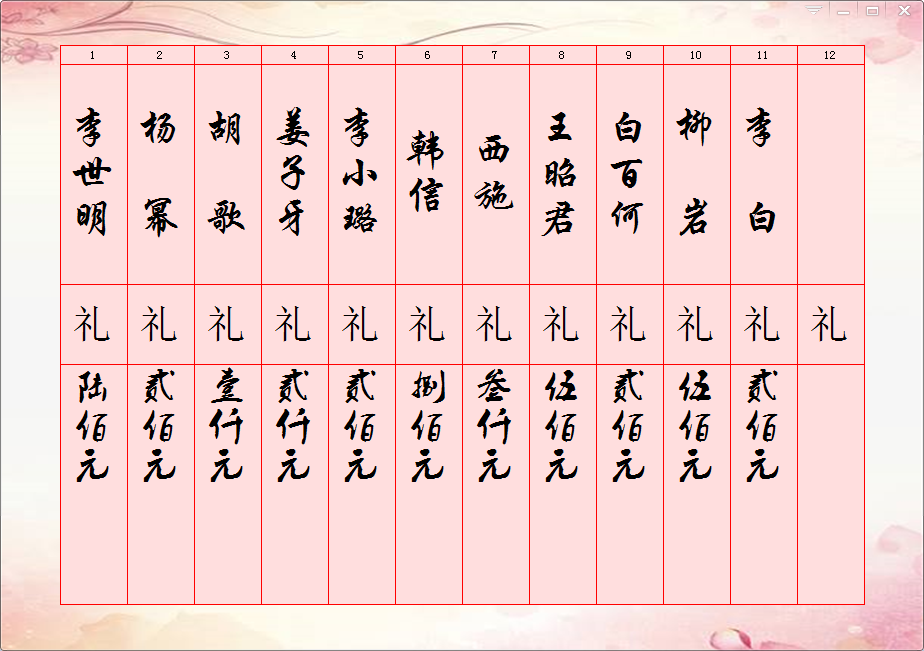 1 2 3 4 5 6 7 8 9 10 11 12
李世明
杨幂
胡歌
姜子牙
李小璐
韩信
西施
王昭君
白百何
柳岩
李白
礼 礼 礼 礼 礼 礼 礼 礼 礼 礼 礼 礼
陆佰元
贰佰元
壹仟元
贰仟元
贰佰元
捌佰元
叁仟元
伍佰元
贰佰元
伍佰元
贰佰元